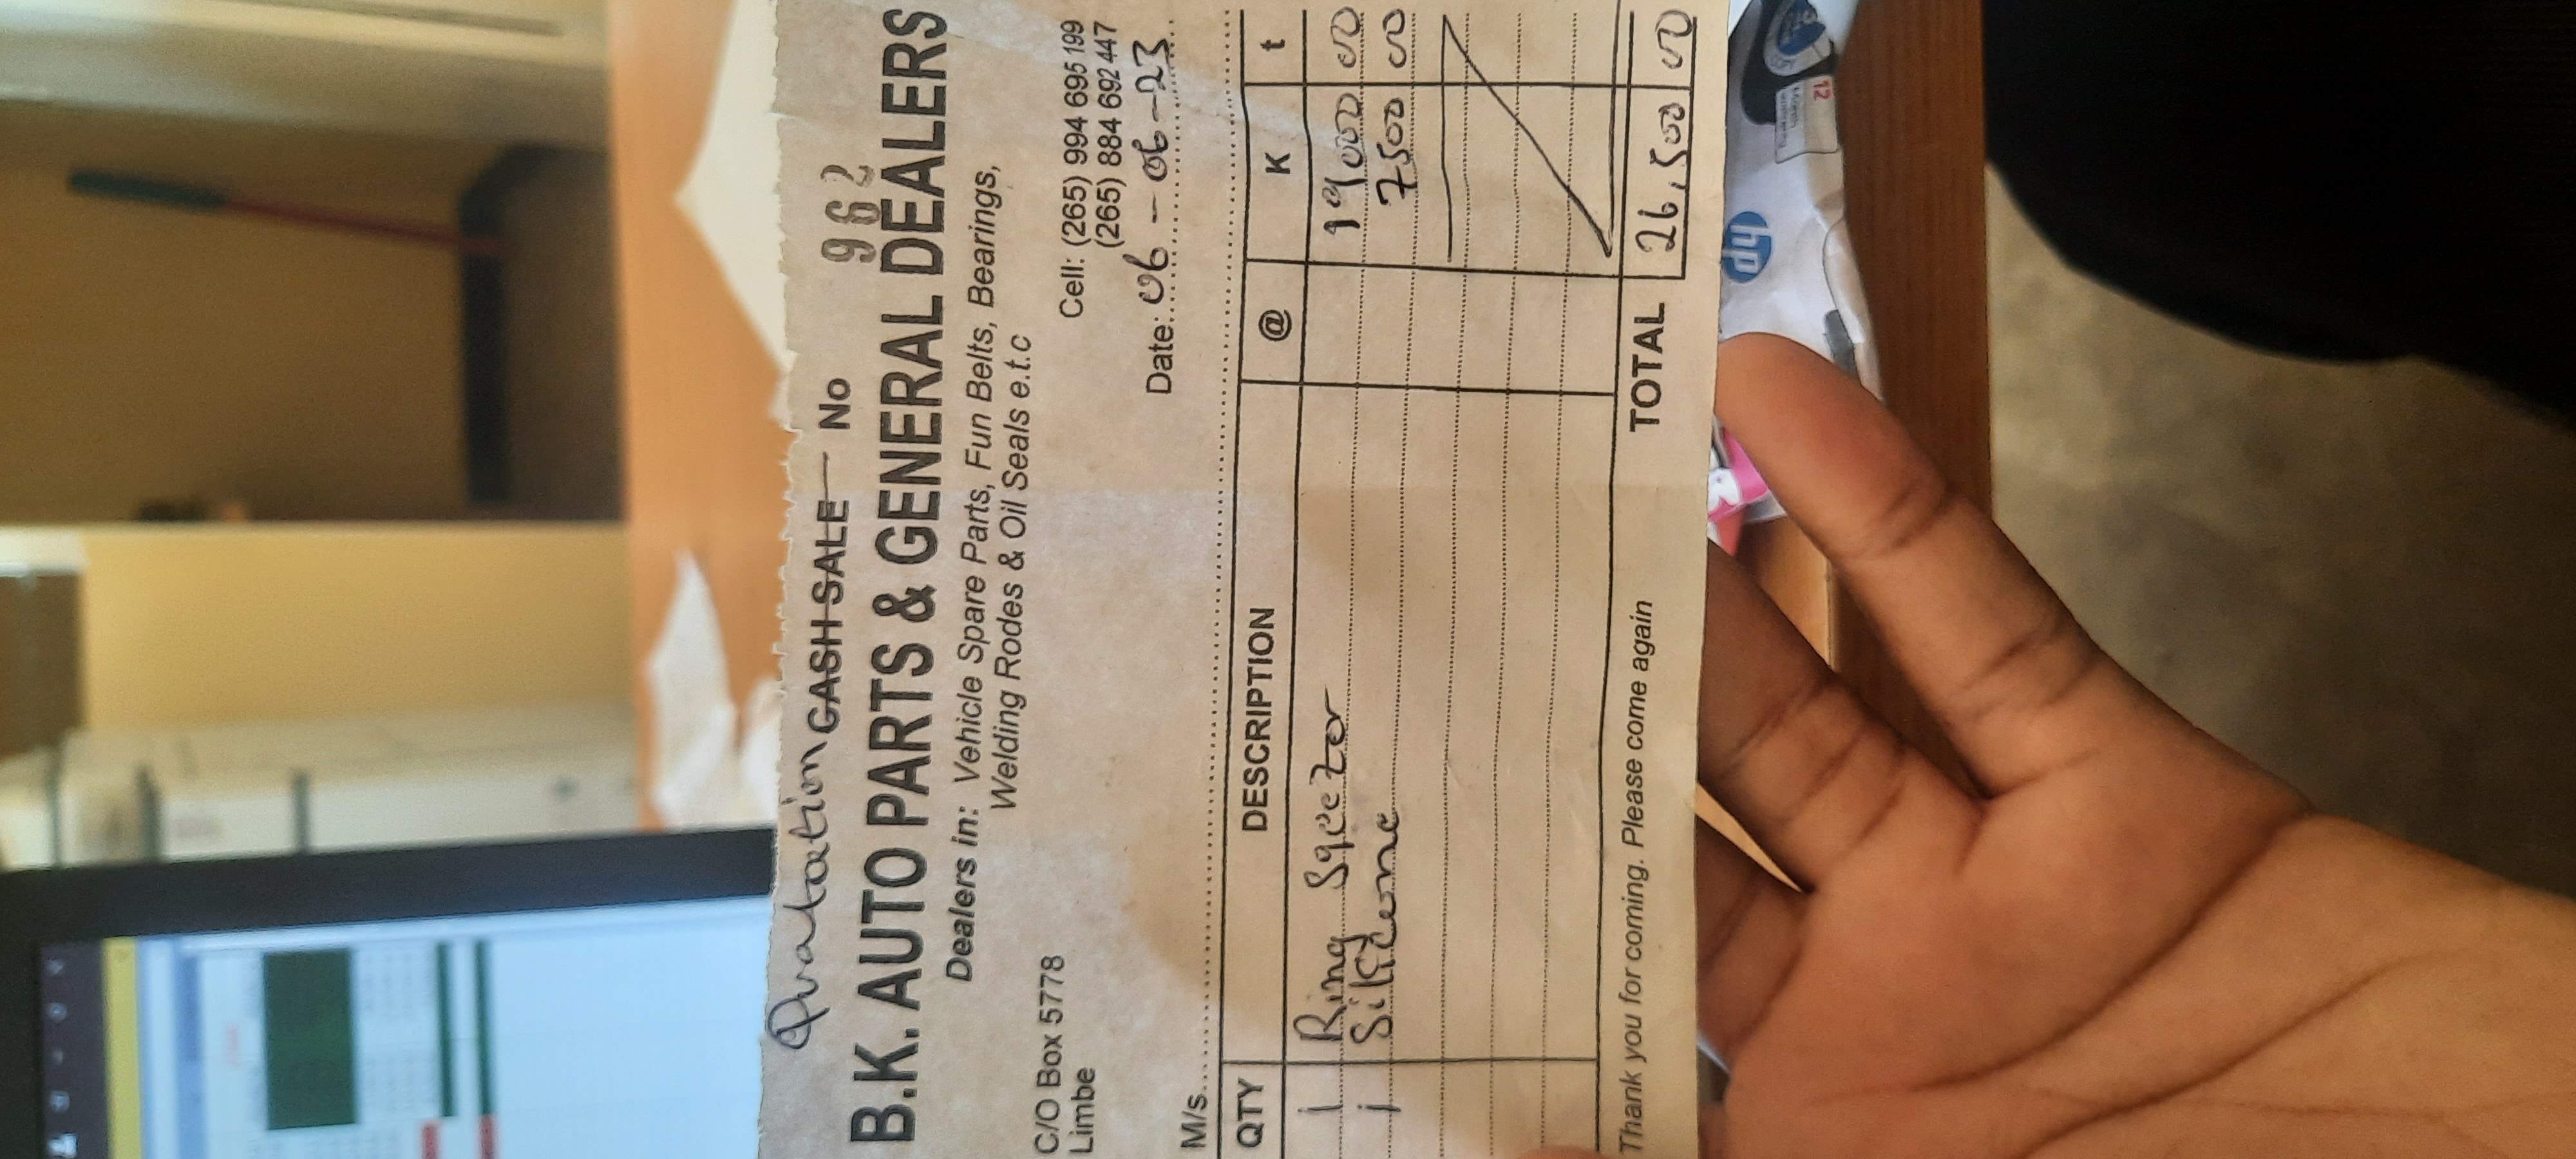 Quatation CASH SALE No 962
B.K. AUTO PARTS & GENERAL DEALERS
Dealers in: Vehicle Spare Parts, Fun Belts, Bearings,
Welding Rodes & Oil Seals e.t.c
C/O Box 5778
Limbe
Cell: (265) 994 695 199
(265) 884 692 447
Date: 06-06-23
M/s
QTY DESCRIPTION @ K t
1 Ring Sqeezor 19000 00
1 Silicone 7500 00
Thank you for coming. Please come again TOTAL 26,500 00
hp
12